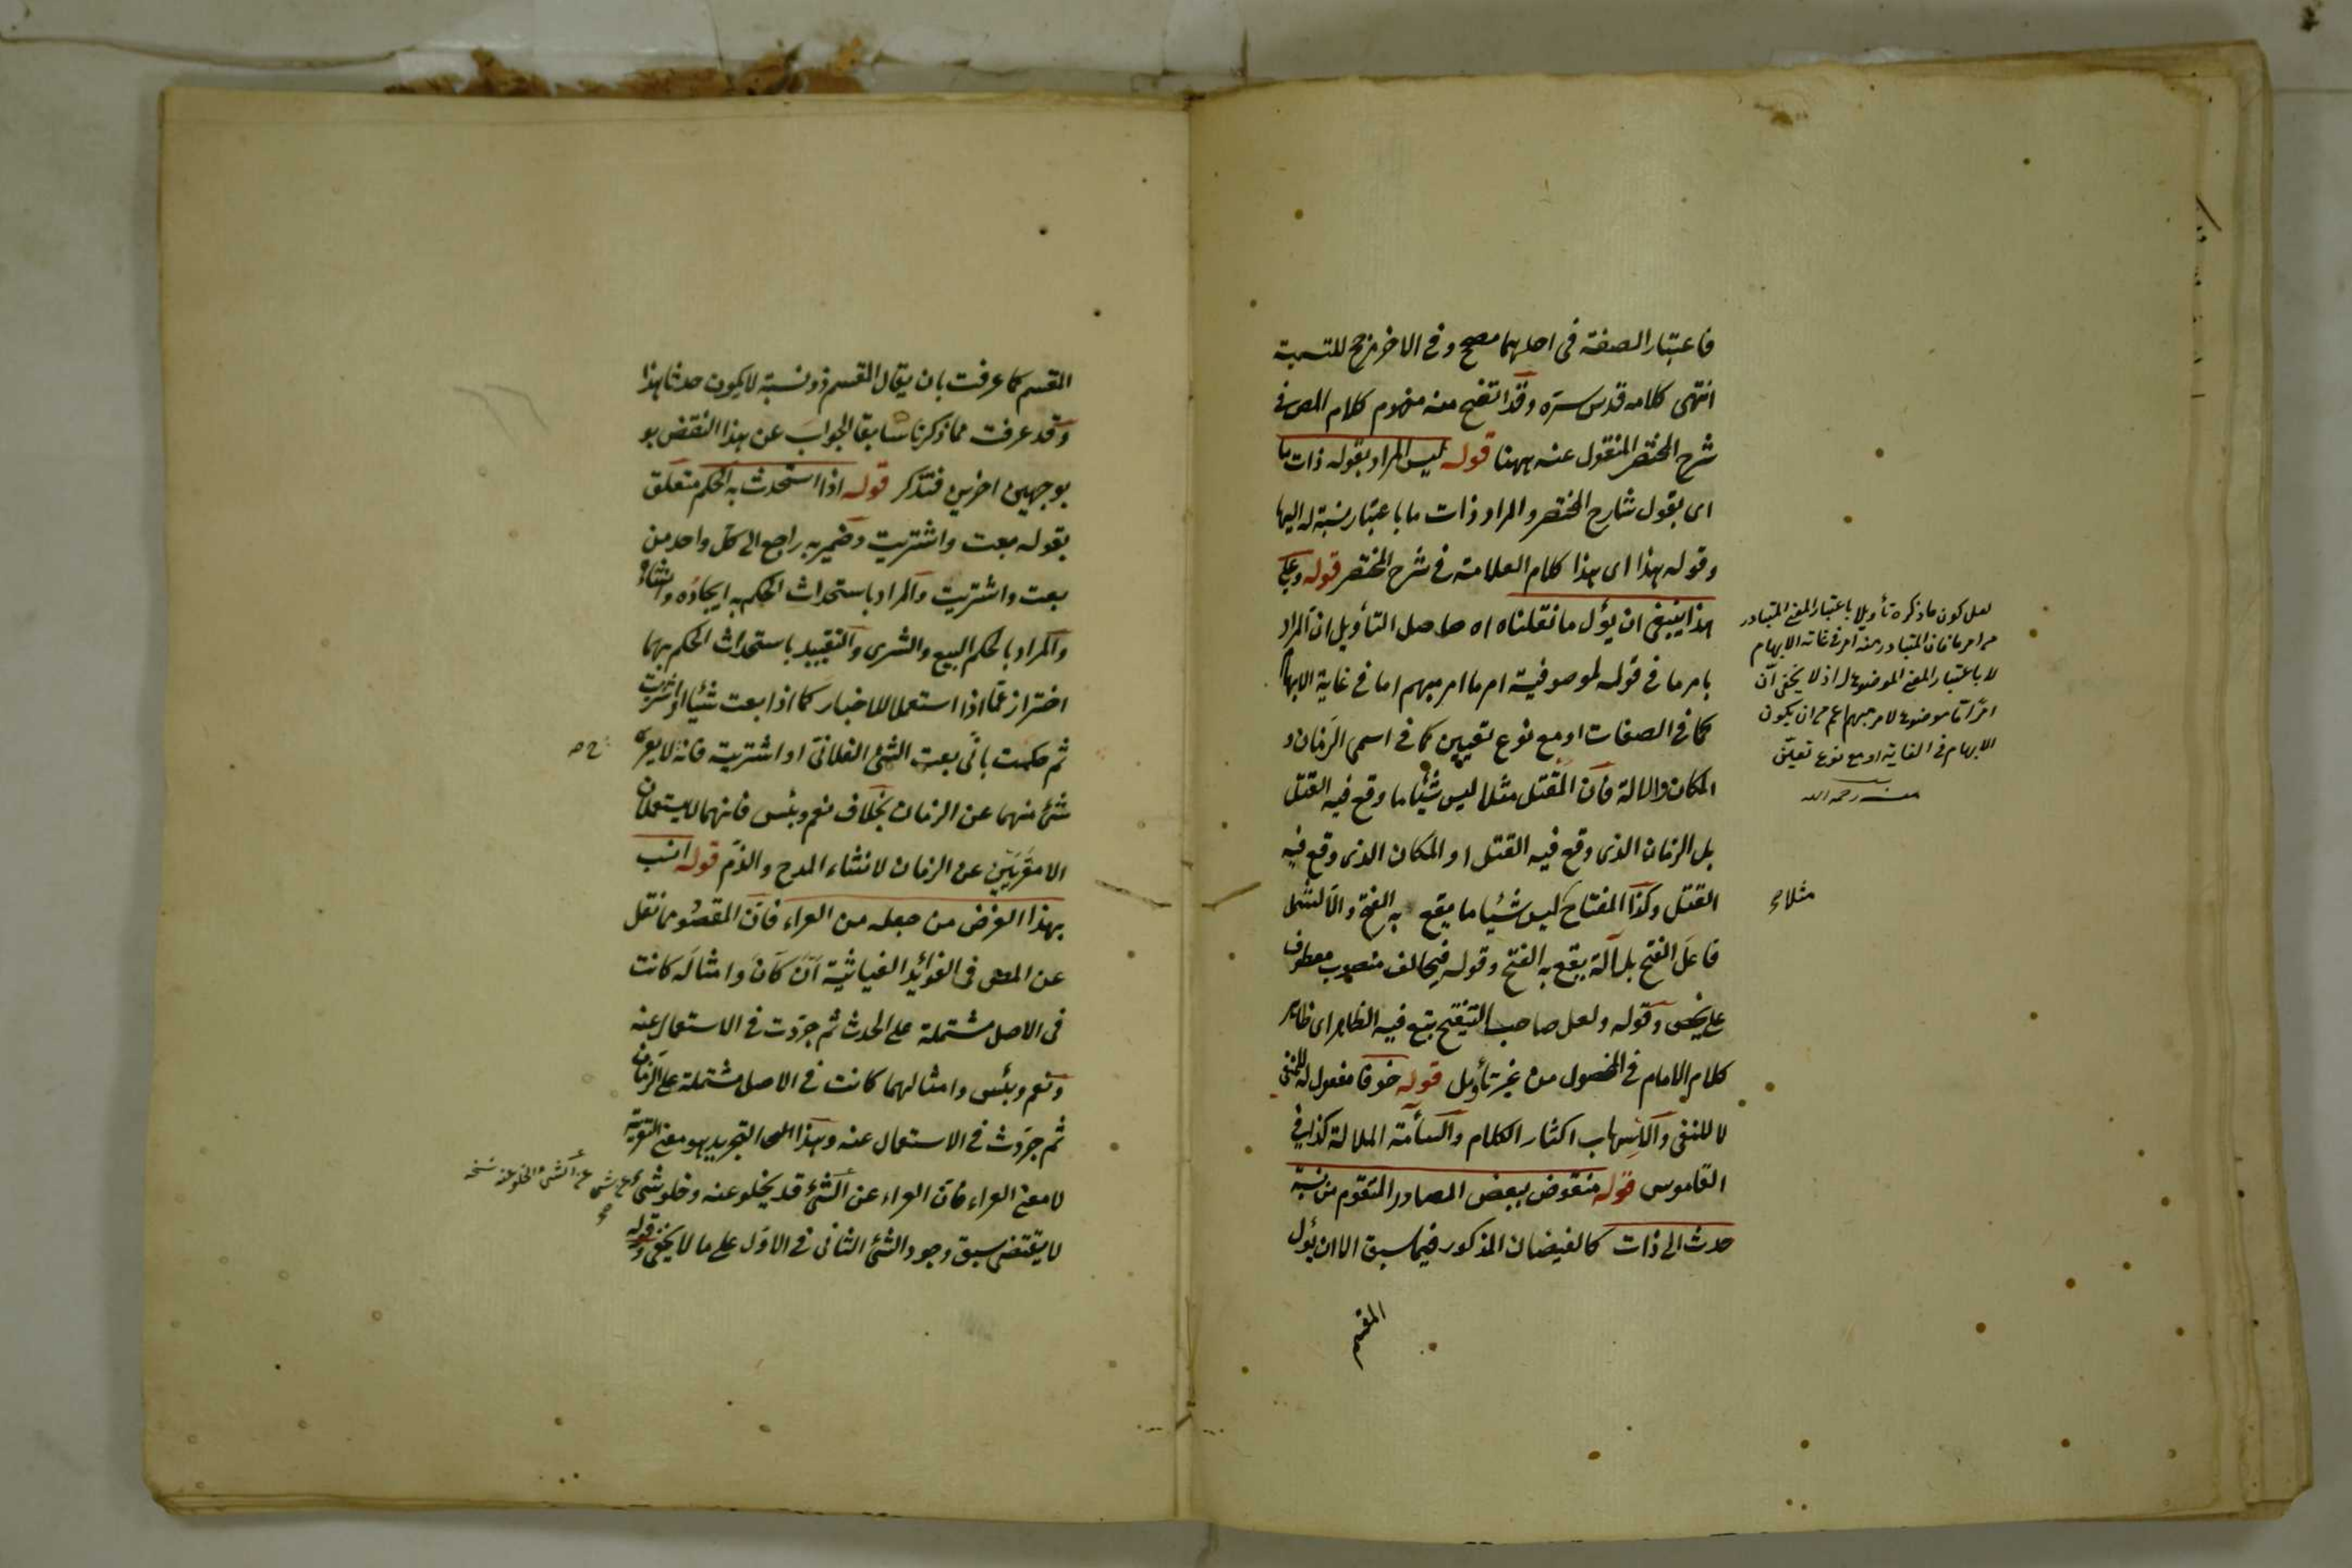 فاعتبار الصفة فى احدهما مصحح وفى الاخر مرجح للتسمية
انتهى كلامه قدس سره وقد اتضح منه مفهوم كلام المص فى
شرح المختصر المنقول عنه ههنا قوله ليس المراد بقوله ذات ما
اى بقول شارح المختصر والمراد ذات ما باعتبار نسبة له اليها
وقوله هذا اى هذا كلام العلامة فى شرح المختصر قوله وعلى
هذا ينبغى ان يؤل ما نقلناه اه حاصل التأويل ان المراد
بامر ما فى قوله لموصوفية امر ما امر مبهم اما فى غاية الابهام
كما فى الصفات او مع نوع تعيين كما فى اسمى الزمان و
المكان والالة فان المقتل مثلا ليس شيئا ما وقع فيه القتل
بل الزمان الذى وقع فيه القتل او المكان الذى وقع فيه
القتل وكذا المفتاح ليس شيئا ما يقع به الفتح والا لشمل
فاعل الفتح بل آلة يقع به الفتح وقوله فيخالف منصوب معطوف
على وقوله ولعل صاحب التنقيح يتبع فيه الظاهر اى ظاهر
كلام الامام فى المحصول من غير تأويل قوله خوفا مفعول له للمنفى
لا للنفى والاسهاب اكثار الكلام والسأمة الملالة كذا فى
القاموس قوله منقوض ببعض المصادر المتقوم من نسبة
حدث الى ذات كالفيضان المذكور فيما سبق الا ان يؤل
المقسم
لعل كون ما ذكره تأويلا باعتبار المعنى المتبادر
من امر ما فان المتبادر منه امر فى غاية الابهام
لا باعتبار المعنى الموضوع له اذ لا يخفى ان
امرا ما موضوع لامر مبهم اعم من ان يكون
الابهام فى الغاية او مع نوع تعيين
منه رحمه الله
مثلا
المقسم كما عرفت بان يقال المقسم ذو نسبة لا يكون حدثا هذا
وقد عرفت مما ذكرنا سابقا الجواب عن هذا النقض بو
بوجهين اخرين فتذكر قوله اذا استحدث به الحكم متعلق
بقوله بعت واشتريت وضمير به راجع الى كل واحد من
بعت واشتريت والمراد باستحداث الحكم به ايجاده وانشاؤه
والمراد بالحكم البيع والشرى والتقييد باستحداث الحكم بهما
احتراز عما اذا استعملا للاخبار كما اذا بعت شيئا او اشتريت
ثم حكمت بانى بعت الشئ الفلانى او اشتريت فانه لا يعرى
شئ منهما عن الزمان بخلاف نعم وبئس فانهما لا يستعملان
الا معريين عن الزمان لانشاء المدح والذم قوله انسب
بهذا الغرض من جعله من العراء فان المقصود مما نقل
عن المص فى الفوائد الغياثية ان كان وامثاله كانت
فى الاصل مشتملة على الحدث ثم جردت فى الاستعمال عنه
ونعم وبئس وامثالهما كانت فى الاصل مشتملة على الزمان
ثم جردت فى الاستعمال عنه وهذا التجريد هو معنى التعرية
لا معنى العراء فان العراء عن الشئ قد يخلو عنه وخلو شئ
لا يقتضى سبق وجود الشئ الثانى فى الاول على ما لا يخفى وقوله